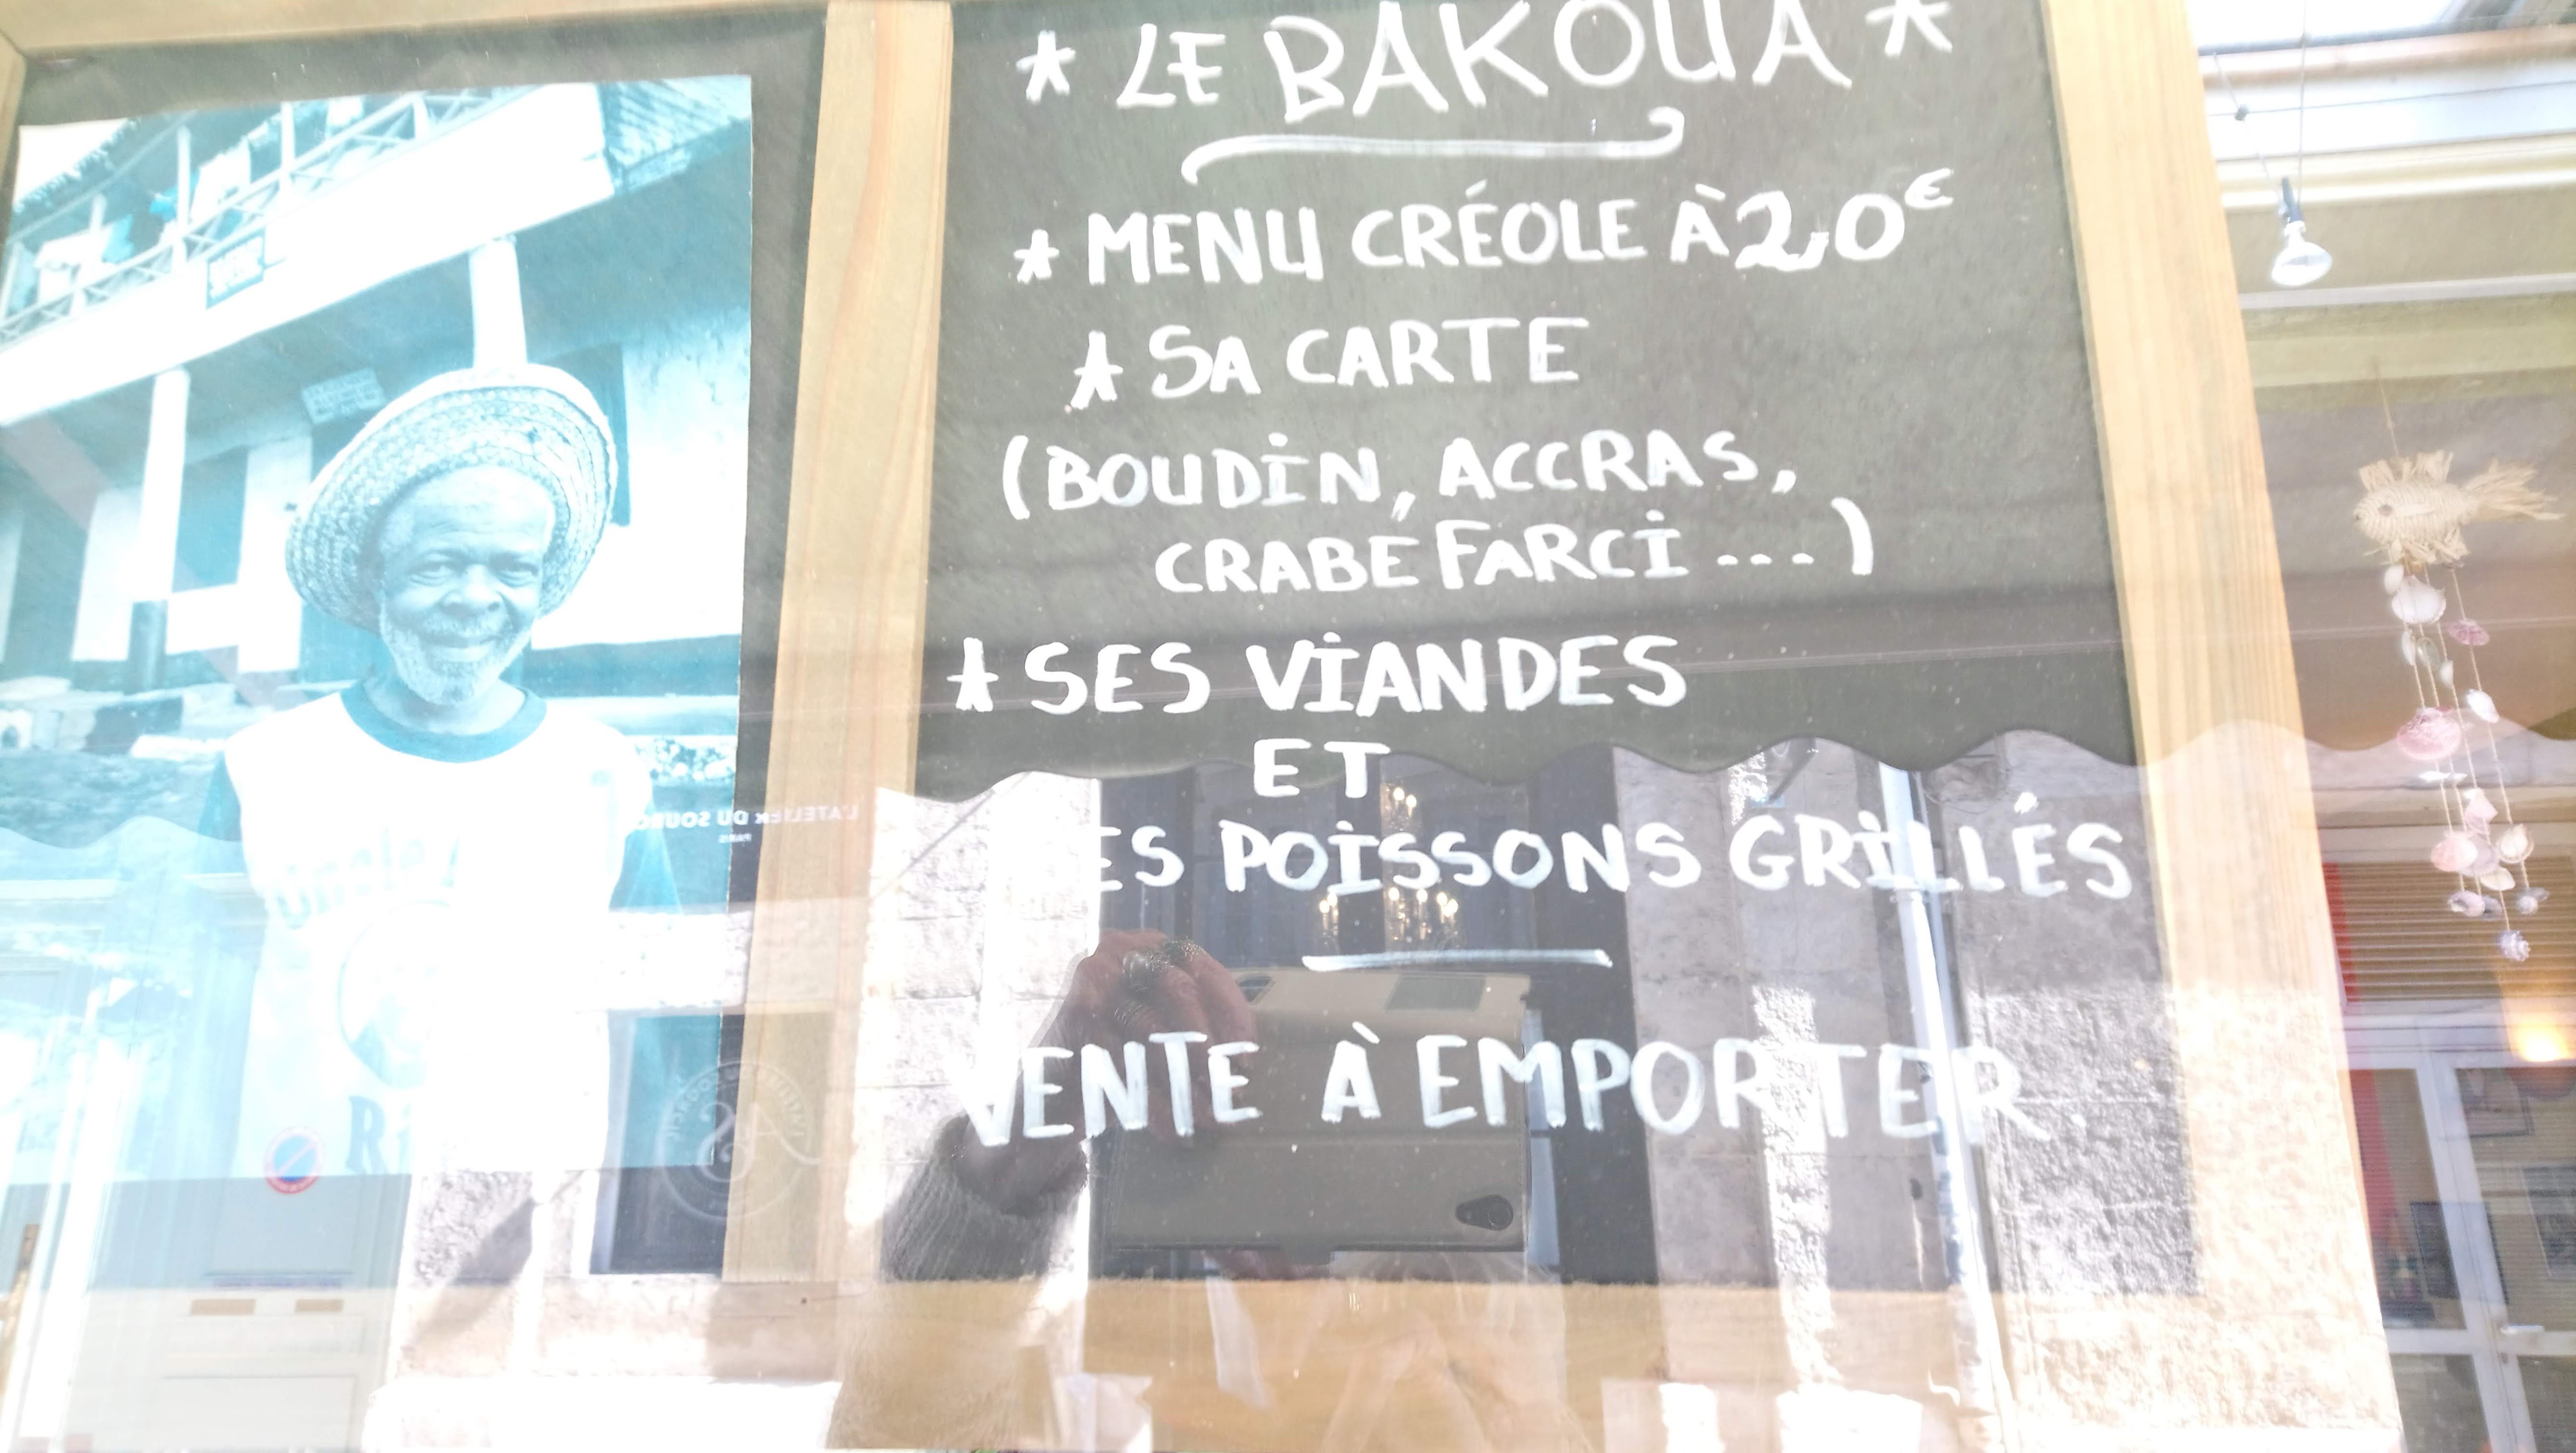 * LE BAKOUA *
* MENU CRÉOLE À 20€
* SA CARTE
(BOUDIN, ACCRAS,
CRABE FARCI ...)
* SES VIANDES
ET
ES POISSONS GRILLÉS
VENTE À EMPORTER
L'ATELIER DU
PARIS